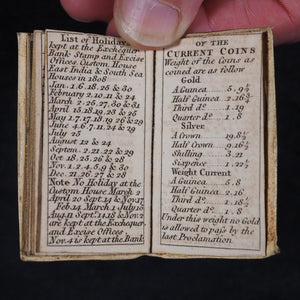 List of Holidays
kept at the Exchequer
Bank Stamp and Excise
Offices Custom House
East India & South Sea
Houses in 1808
Jan. 1. 6. 18. 25 & 30
February 2. 10. 11 & 24
March 2. 25. 27. 30 & 31
April
May 1. 7. 17. 18. 19 & 29
June 4. 6. 7. 11. 24 & 29
July 25
August 12 & 24
Septem. 2. 21. 22 & 29
Oct. 18. 25. 26 & 28
Novem. 1. 4. 5. 9 & 30
Dec. 21. 25. 26. 27 & 28
Note No Holiday at the
Custom House March 2
April 20 Sept. 14 & Nov. 17
Feb. 14 March 1 July 15
Aug. 1 Sept. 14. 18 & Nov. 2
are kept at the Exchequer
and Excise Offices
Nov. 4 is kept at the Bank
OF THE
CURRENT COINS
Weight of the Coins as
coined are as follow
Gold
A Guinea 5 . 9
Half Guinea 2 . 16
Third do. 1 . 19
Quarter do. 1 . 8
Silver
A Crown 19 . 8
Half Crown 9 . 16
Shilling 3 . 21
Sixpence 1 . 22
Weight Current
A Guinea 5 . 8
Half Guinea 2 . 16
Third do. 1 . 18
Quarter do. 1 . 8
Under this weight no Gold
is allowed to pass by the
last Proclamation